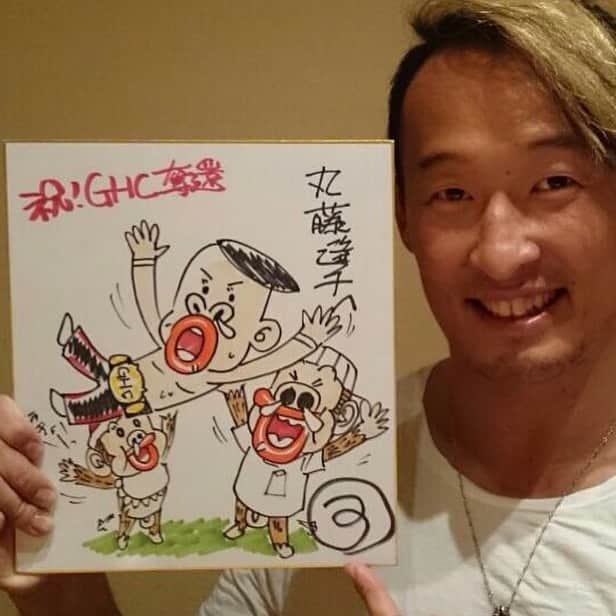 祝!GHC奪還
丸藤選手へ
GHC